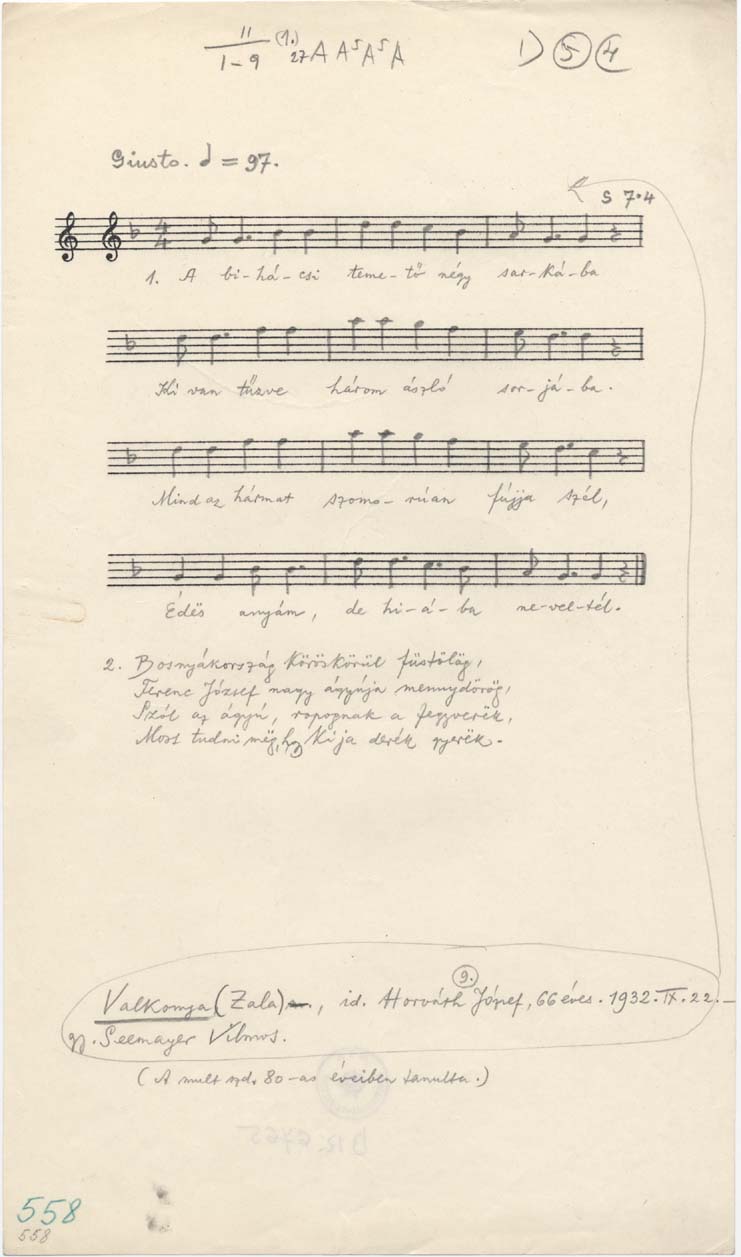 II (1.)
1-9 27 A A⁵ A⁵ A 1) 5 4
Giusto. ♩ = 97.
S 7·4
1. A bi-há-csi teme-tő négy sar-ká-ba
Ki van tűzve három ászló sor-já-ba.
Mind az hármat szomo-rúan fújja szél,
Édës anyám, de hi-á-ba ne-vel-tél.
2. Bosnyákország köröskörül füstölög,
Ferenc József nagy ágyúja mennydörög,
Szól az ágyú, ropognak a fegyverëk,
Most tudni mëg, hogy ki ja derék gyerëk.
9.
Valkonya (Zala), id. Horváth József, 66 éves. 1932. IX. 22.–
gy. Seemayer Vilmos.
(A mult szd. 80-as éveiben tanulta.)
558
558